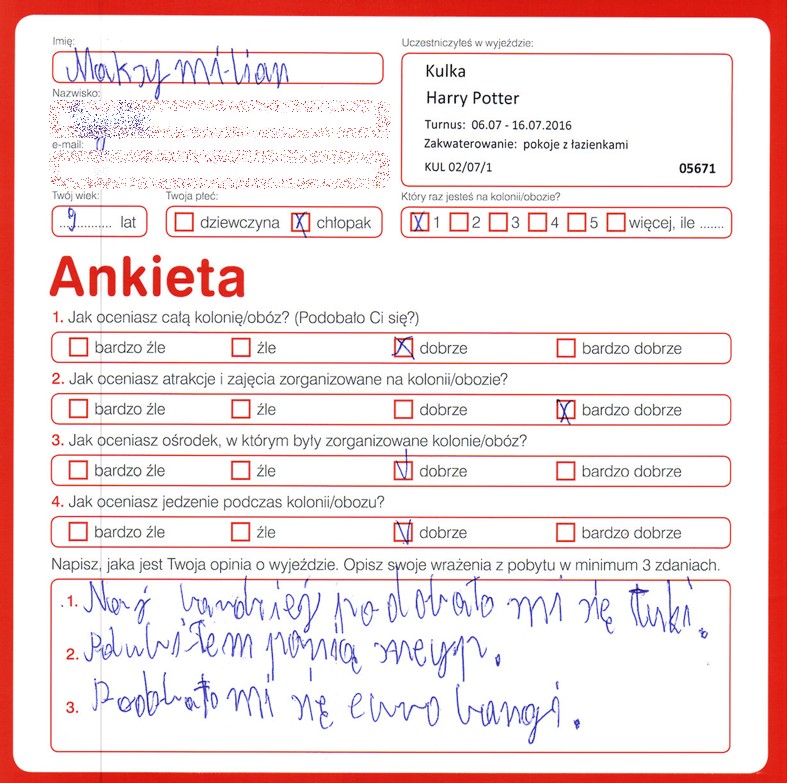 Imię:
Maksymilian
Uczestniczyłeś w wyjeździe:
Kulka
Harry Potter
Turnus: 06.07 - 16.07.2016
Zakwaterowanie: pokoje z łazienkami
KUL 02/07/1 05671
Nazwisko:
e-mail:
Twój wiek:
9 lat
Twoja płeć:
dziewczyna X chłopak
Który raz jesteś na kolonii/obozie?
X 1 2 3 4 5 więcej, ile .......
Ankieta
1. Jak oceniasz całą kolonię/obóz? (Podobało Ci się?)
bardzo źle źle X dobrze bardzo dobrze
2. Jak oceniasz atrakcje i zajęcia zorganizowane na kolonii/obozie?
bardzo źle źle dobrze X bardzo dobrze
3. Jak oceniasz ośrodek, w którym były zorganizowane kolonie/obóz?
bardzo źle źle V dobrze bardzo dobrze
4. Jak oceniasz jedzenie podczas kolonii/obozu?
bardzo źle źle V dobrze bardzo dobrze
Napisz, jaka jest Twoja opinia o wyjeździe. Opisz swoje wrażenia z pobytu w minimum 3 zdaniach.
1. Naj bardziej podobało mi się
2. Polubiłem panią
3. Podobało mi się euro bangi.